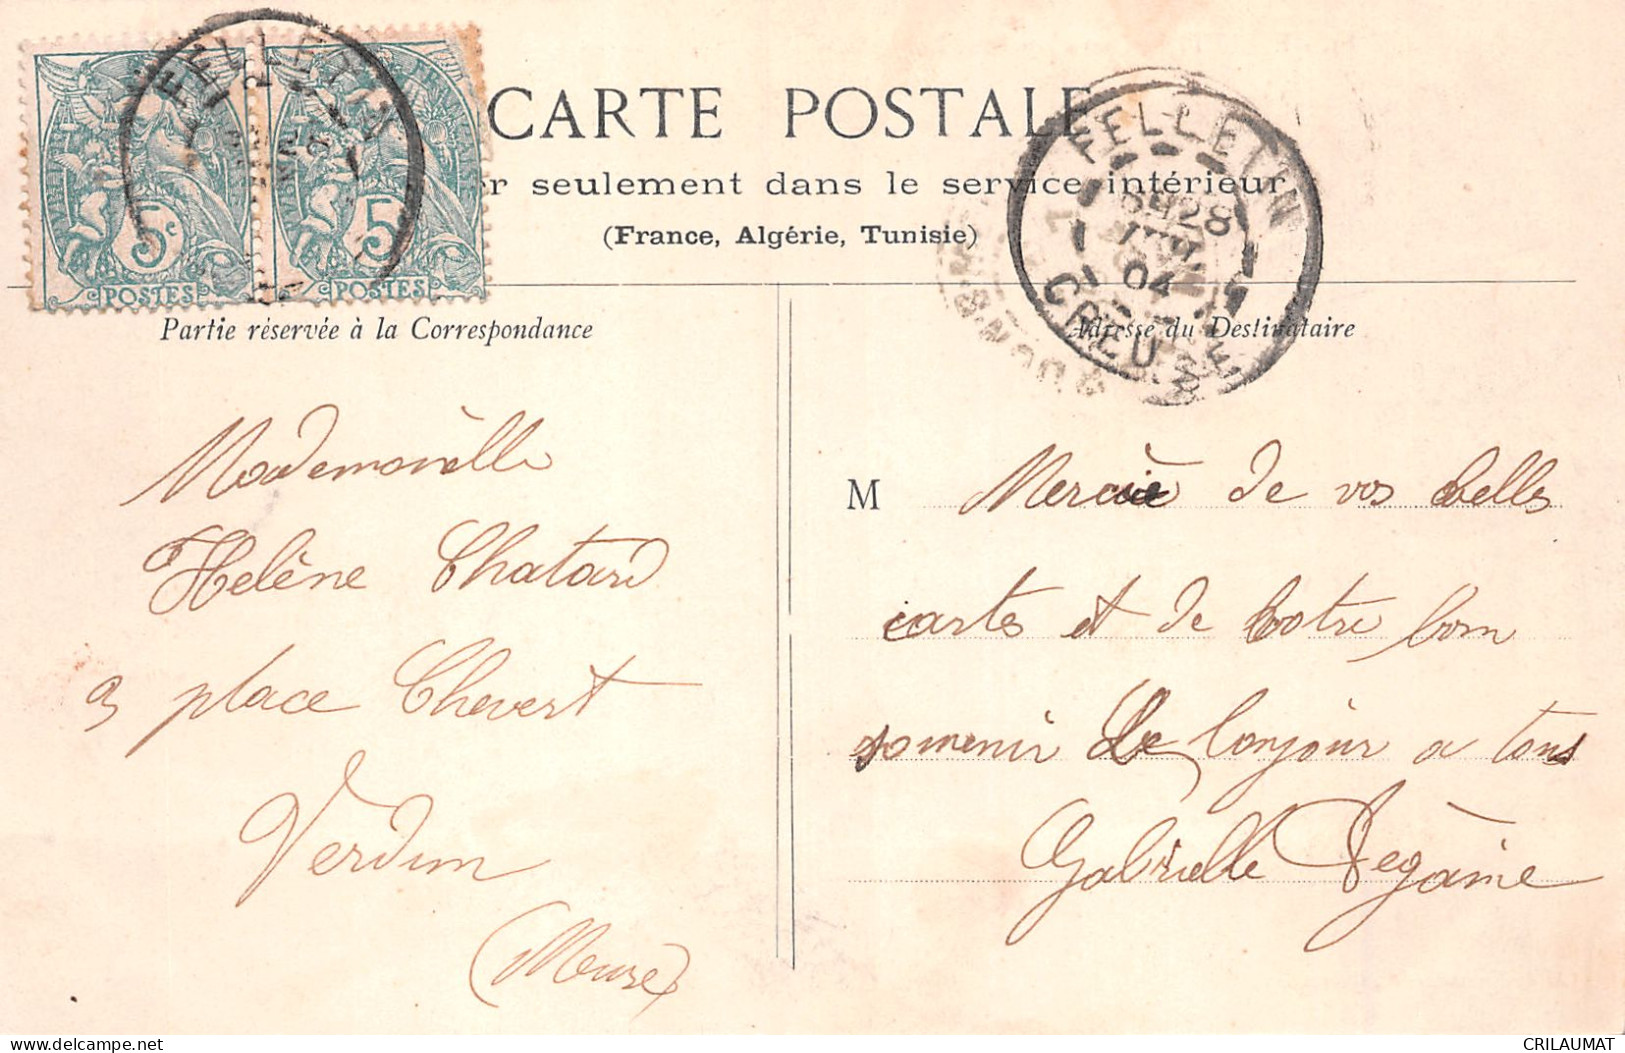 CARTE POSTALE
r seulement dans le service intérieur
(France, Algérie, Tunisie)
5c
POSTES
5
POSTES
FELLETIN
FELLETIN
6H 28
04
CREUSE
Partie réservée à la Correspondance
Adresse du Destinataire
Mademoiselle
Helène Chatard
9 place Chevert
Verdun
(Meuse)
M
Mercie de vos belles
cartes et de votre bon
souvenir Le bonjour a tous
Gabrielle
CRILAUMAT
Delcampe.net